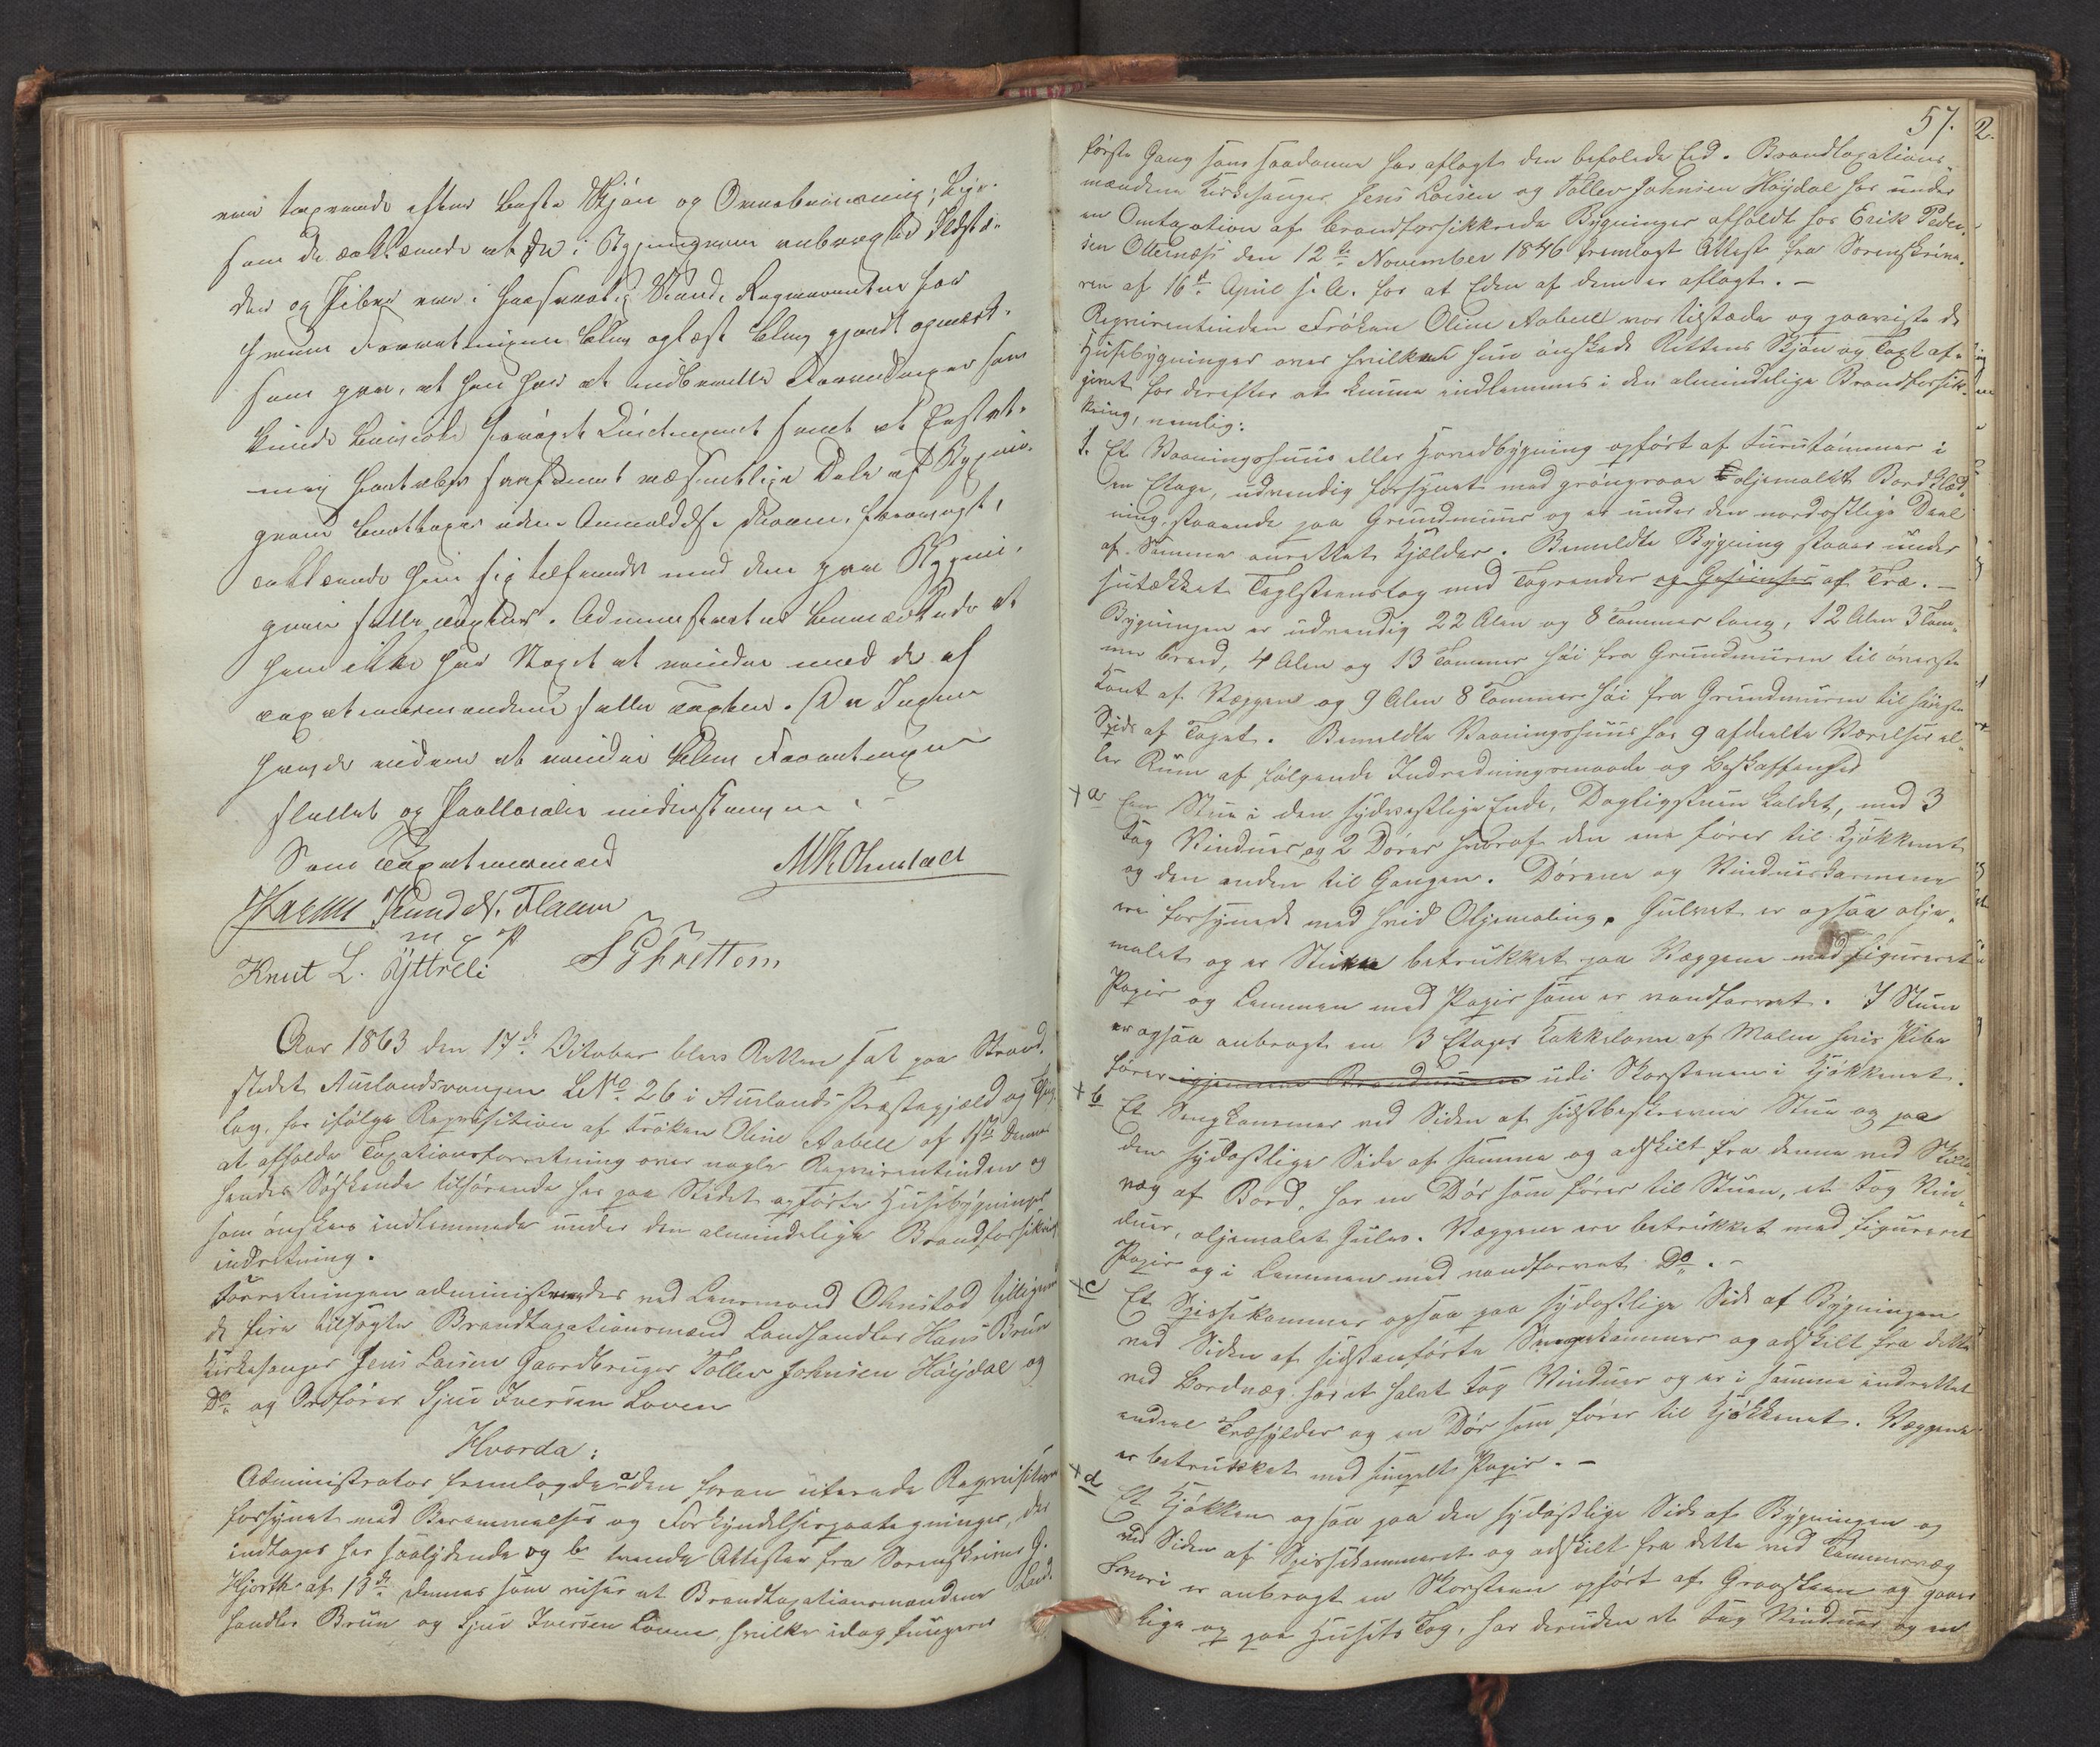 vare taxerede efter bedste Skjøn og Overbeviisning; lige-
som de erklærede at de i Bygningerne anbragte Ildste-
der og Piber var i forsvarlig Stand. Requirenten for
hvem Forretningen blev oplæst blev gjordt opmærk-
som paa, at han har at indberette Forandringer som
kunde bevirke forøget samt at
mig foretages saafremt væsentlige Dele af Bygnin-
gerne borttages uden Anmeldelse derom forevægt,
erklærede han sig tilfreds med den paa Bygnin-
gerne satte Taxter. Administrator bemærkede at
han ikke har Noget at erindre med de af
Taxationsmændene satte Taxter. Da Ingen
havde videre at erindre blev Forretningen
sluttet og Protocollen underskreven.
Som Taxationsmænd
MK Ohnstad
Knud N. Flaam
m p P
Knut L. Ÿttreli
Aar 1863 den 17de Octobar blev Retten sat paa Strand-
stedet Aurlandsvangen L No 26 i Aurlands Præstegjæld og Thing-
lag, for ifølge Reqvisition af Frøken Oline Aabell af 1ste dennes
at afholde Taxationsforretning over nogle Reqvirentinden og
hendes Søskende tilhørende her paa Stedet opførte Husebygninger
som ønskes indlemmede under den almindelige Brandforsikrings
indretning.
Forretningen administreredes ved Lensmand Ohnstad tilligemed
de fire tilsagte Brandtaxationsmænd Landhandler Hans Brun
Kirkesanger Jens Larsen Gaardbruger Tollev Johnsen Høydal og
Do og Ordfører Sjur Iversen Loven
Hvorda:
Administrator fremlagde a den foran citerede Reqvisition
forsynet med Berammelses og Forkyndelsespaategninger, der
indtages her saalydende og b tvende Attester fra Sorenskriver G.
Hjorth af 13de dennes som viser at Brandtaxationsmændene Land-
handler Brun og Sjur Iversen Loven, hvilke idag fungerer
57.
2.
første Gang som saadanne har aflagt den befalede Ed. Brandtaxations-
mændene Kirkesanger Jens Larsen og Tollev Johnsen Høydal har under
en Omtaxation af brandforsikkrede Bygninger afholdt hos Erik Peder-
sen Otternæss den 12te November 1846 fremlagt Attest fra Sorenskrive-
ren af 16d April s. A. for at Eden af dem er aflagt. –
Reqvirentinden Frøken Oline Aabell var tilstæde og paaviste de
Husebygninger over hvilke hun ønskede Rettens Skjøn og Taxt af-
givet for derefter at kunne indlemmes i den almindelige Brandforsik-
kring, nemlig:
1. Et Vaaningshuus eller Hovedbygning opført af Furutømmer i
en Etage, udvendig forsynet med graagraae oljemalet Bordklæd-
ning, staaende paa Grundmuur og er under den nordostlige Deel
af Samme anrettet Kjælder. Bemeldte Bygning staaer under
hutækket Taglsteenstag med Tagrender og Gesimser af Træ. –
Bygningen er udvendig 22 Alen og 8 Tommer lang, 12 Alen 3 Tom-
mer breed, 4 Alen og 13 Tommer høi fra Grundmuren til øverste
Kant af Væggene og 9 Alen 8 Tommer høi fra Grundmuren til høieste
Spids af Taget. Bemeldte Vaaningshuus har 9 afdeelte Værelser el-
ler Rum af følgende Indredningsmaade og Beskaffenhed
+ a En Stue i den sydvestlige Ende, Dagligstuen kaldet, med 3
Fag Vinduer og 2 Døre hvoraf den ene fører til Kjøkkenet
og den anden til Gangen. Dørene og Vindueskarmene
ere forsynede med hvid Oljemaling. Gulvet er ogsaa olje-
malet og er Stuen betrukket paa Væggene med figureret
Papir og Lemmen med Papir som er vandfarvet. I Stuen
er ogsaa anbragt en 3 Etages Kakkelovn af Malm hvis Pibe
fører igjennem Brandmuren udi Skorstenen i Kjøkkenet.
+ b Et Sengkammer ved Siden af sidstbeskrevne Stue og paa
den sydostlige Side af samme og adskilt fra denne ved Skille-
væg af Bord, har en Dør som fører til Stuen, et Fag Vin-
duer, oljemalet Gulv. Væggene ere betrukket med figureret
Papir og i Lemmen med vandfarvet Do. –
+ c Et Spisekammer ogsaa paa sydostlige Side af Bygningen
ved Siden af sidstanførte Sengekammer og adskilt fra dette
ved Bordvæg har et halvt Fag Vinduer og er i samme indrettet
endeel Træhylder og en Dør som fører til Kjøkkenet. Væggene
er betrukket med simpelt Papir. –
+ d Et Kjøkken ogsaa paa den sydostlige Side af Bygningen og
ved Siden af Spisekammeret og adskilt fra dette ved Tømmervæg
hvori er anbragt en Skorsteen opført af Graasteen og gaaer
lige op paa Husets Tag, har desuden et Fag Vinduer og en